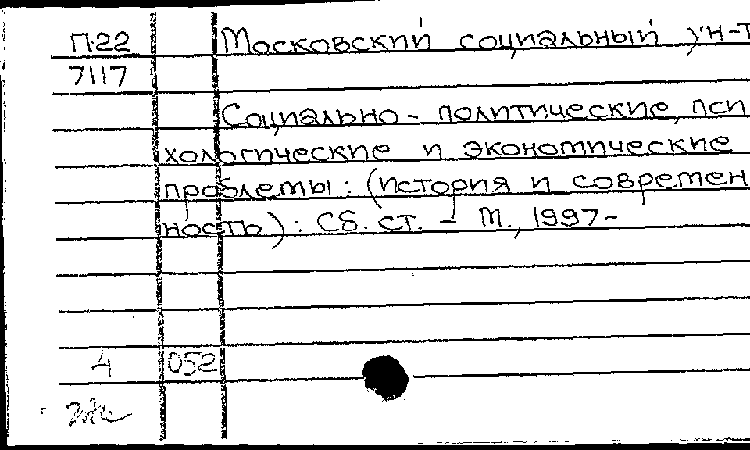 П22 Московский социальный ун-т
7117
Социально-политические, пси
хологические и экономические
проблемы: (история и современ
ность): Сб. ст. - М., 1997-
А 052